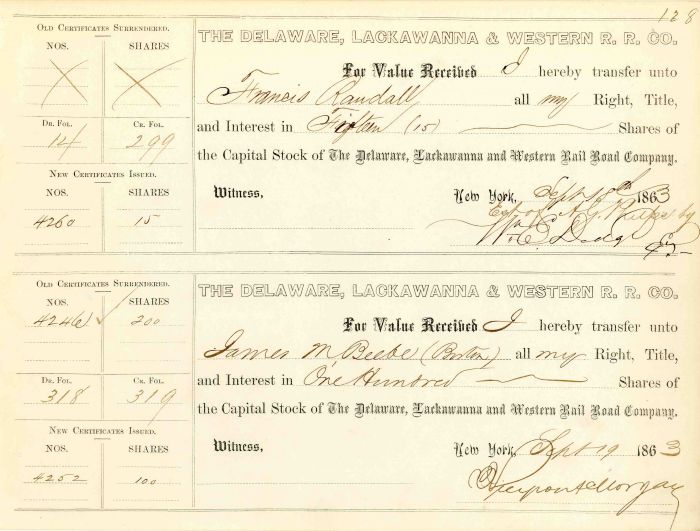 128
OLD CERTIFICATES SURRENDERED.
NOS. SHARES
DR. FOL. CR. FOL.
14 299
NEW CERTIFICATES ISSUED.
NOS. SHARES
4260 15
THE DELAWARE, LACKAWANNA & WESTERN R. R. CO.
For Value Received I hereby transfer unto
Francis Randall all my Right, Title,
and Interest in Fifteen (15) Shares of
the Capital Stock of The Delaware, Lackawanna and Western Rail Road Company.
Witness, New York, Sept 1863
Est of A. G. Phelps by
W. E. Dodge
OLD CERTIFICATES SURRENDERED.
NOS. SHARES
200
DR. FOL. CR. FOL.
318 319
NEW CERTIFICATES ISSUED.
NOS. SHARES
4252 100
THE DELAWARE, LACKAWANNA & WESTERN R. R. CO.
For Value Received I hereby transfer unto
James M Beebe (Boston) all my Right, Title,
and Interest in One Hundred Shares of
the Capital Stock of The Delaware, Lackawanna and Western Rail Road Company.
Witness, New York, Sept 19 1863
J Pierpont Morgan